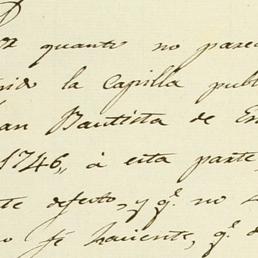 or quanto no parec
rido la Capilla publ
an Bautista de En
1746, à esta parte,
te defecto, y q.e no
fé haciente, q.e d